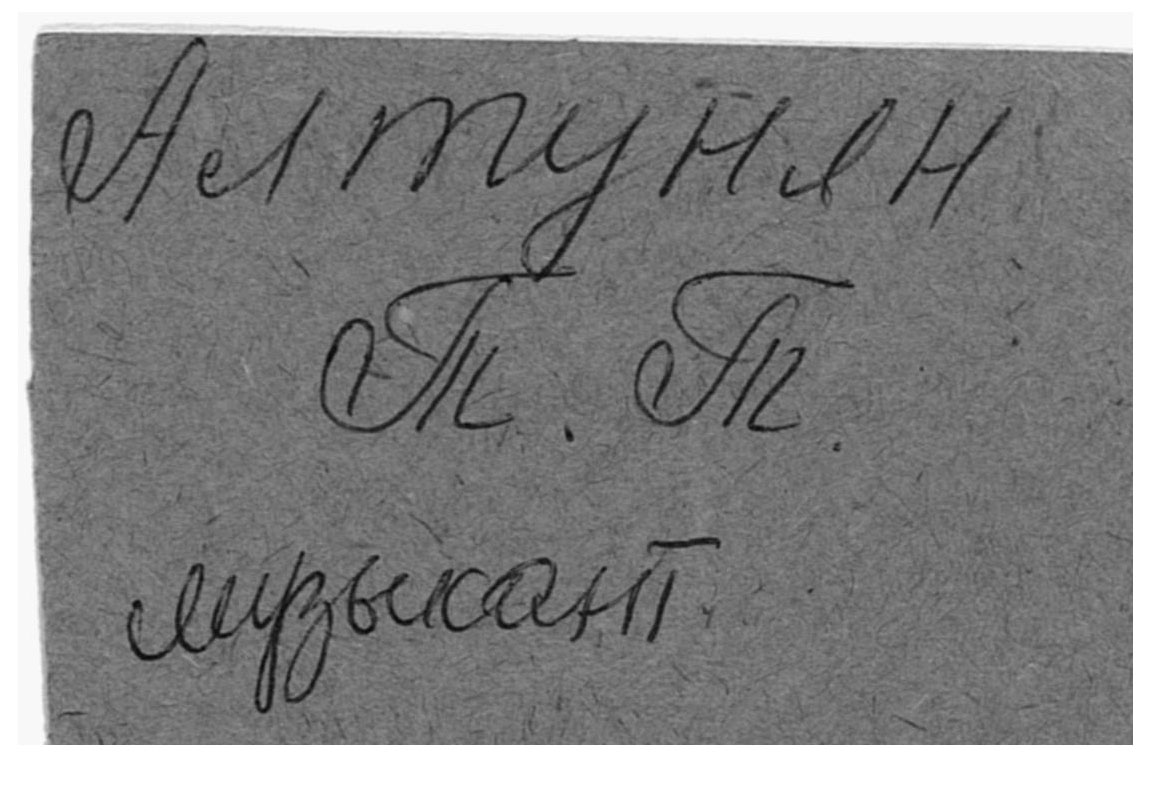 Алтунян
П. П.
музыкант